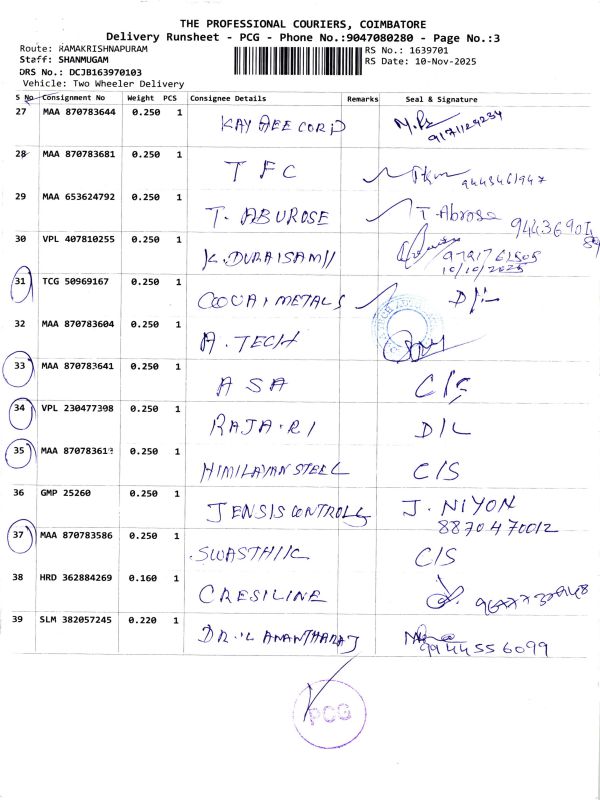 THE PROFESSIONAL COURIERS, COIMBATORE
Delivery Runsheet - PCG - Phone No.:9047080280 - Page No.:3
Route: RAMAKRISHNAPURAM
RS No.: 1639701
Staff: SHANMUGAM
RS Date: 10-Nov-2025
DRS No.: DCJB163970103
Vehicle: Two Wheeler Delivery
S No Consignment No Weight PCS Consignee Details Remarks Seal & Signature
27 MAA 870783644 0.250 1 KAY JEE CORP
9171124234
28 MAA 870783681 0.250 1 TFC
9443461947
29 MAA 653624792 0.250 1 T. ABUROSE T Abrosa
30 VPL 407810255 0.250 1 K. DURAISAMY
9791761505
10/10/2025
31 TCG 50969167 0.250 1 COOVAI METALS D/L
32 MAA 870783604 0.250 1 A. TECH
33 MAA 870783641 0.250 1 ASA C/S
34 VPL 230477398 0.250 1 RAJA.RI D/L
35 MAA 87078361? 0.250 1 HIMILAYAN STEEL C/S
36 GMP 25260 0.250 1 JENSIS CONTROLS J. NIYON
8870470012
37 MAA 870783586 0.250 1 SWASTHIK C/S
38 HRD 362884269 0.160 1 CRESILINE
39 SLM 382057245 0.220 1 DR. L ANANTHARAJ
9944556099
PCG